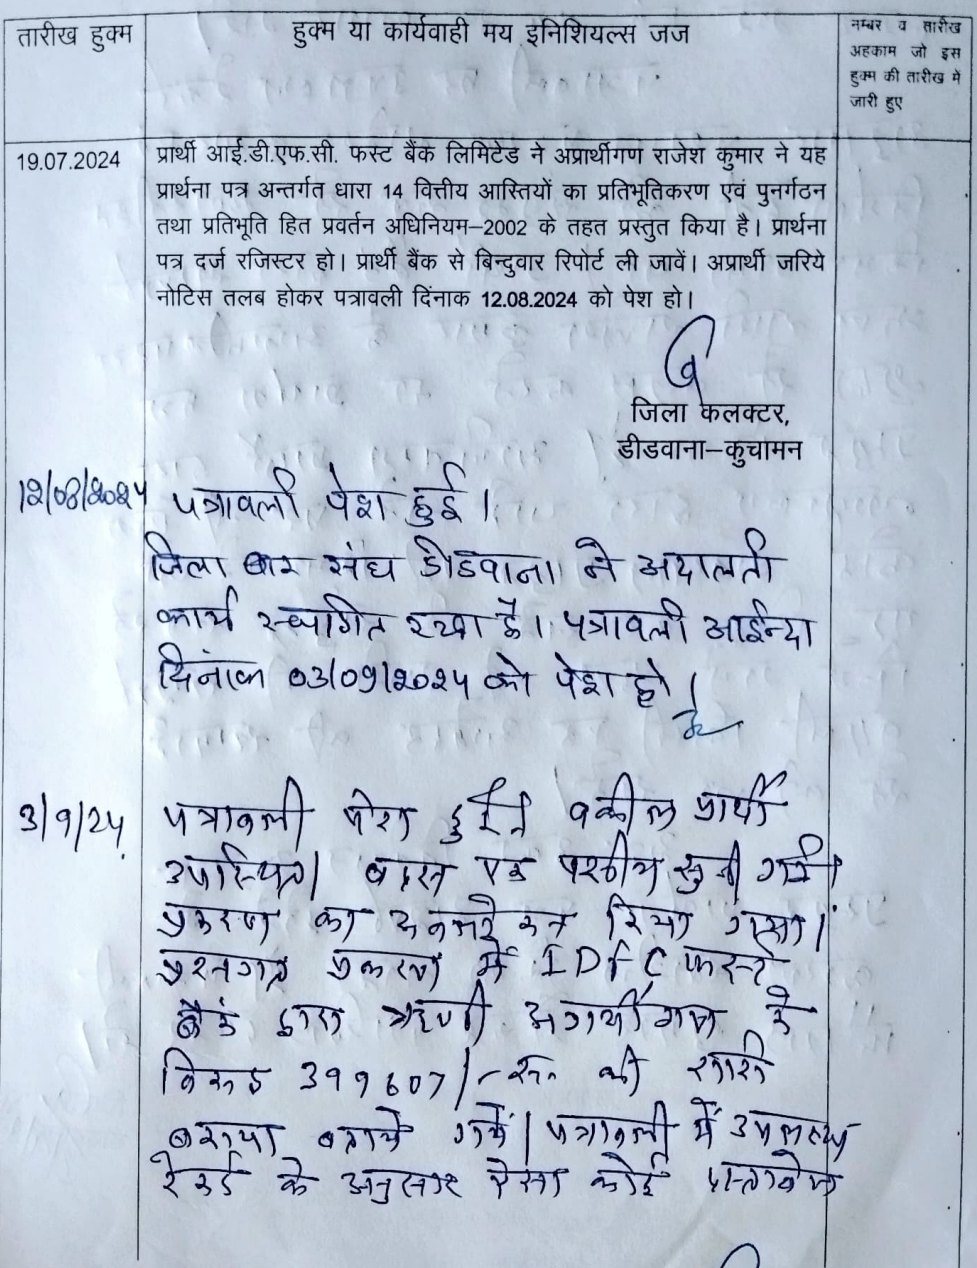 तारीख हुक्म
हुक्म या कार्यवाही मय इनिशियल्स जज
नम्बर व तारीख
अहकाम जो इस
हुक्म की तारीख में
जारी हुए
19.07.2024
प्रार्थी आई.डी.एफ.सी. फस्ट बैंक लिमिटेड ने अप्रार्थीगण राजेश कुमार ने यह
प्रार्थना पत्र अन्तर्गत धारा 14 वित्तीय आस्तियों का प्रतिभूतिकरण एवं पुनर्गठन
तथा प्रतिभूति हित प्रवर्तन अधिनियम–2002 के तहत प्रस्तुत किया है। प्रार्थना
पत्र दर्ज रजिस्टर हो। प्रार्थी बैंक से बिन्दुवार रिपोर्ट ली जावें। अप्रार्थी जरिये
नोटिस तलब होकर पत्रावली दिंनाक 12.08.2024 को पेश हो।
जिला कलक्टर,
डीडवाना–कुचामन
12/08/2024 पत्रावली पेश हुई।
जिला बार संघ डीडवाना ने अदालती
कार्य स्थगित रखा है। पत्रावली आईन्दा
दिनांक 03/09/2024 को पेश हो।
3/9/24 पत्रावली पेश हुई। वकील प्रार्थी
उपस्थित। बहस एक पक्षीय सुनी गई।
प्रकरण का अवलोकन किया गया।
प्रश्नगत प्रकरण में IDFC फस्ट
बैंक द्वारा ऋणी अप्रार्थीगण के
विरूद्ध 399607/- रू. की राशि
बकाया बताये गये। पत्रावली में उपलब्ध
रेकर्ड के अनुसार ऐसा कोई दस्तावेज